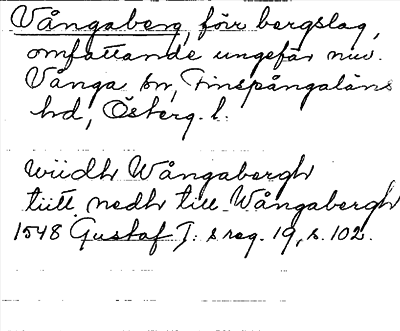 Vångaberg, förr bergslag,
omfattande ungefär nuv.
Vånga sn, Finspångaläns
hd, Österg. l.
wiidh Wångabergh
tiitt nedh till Wångabergh
1548 Gustaf I:s reg. 19, s. 102.